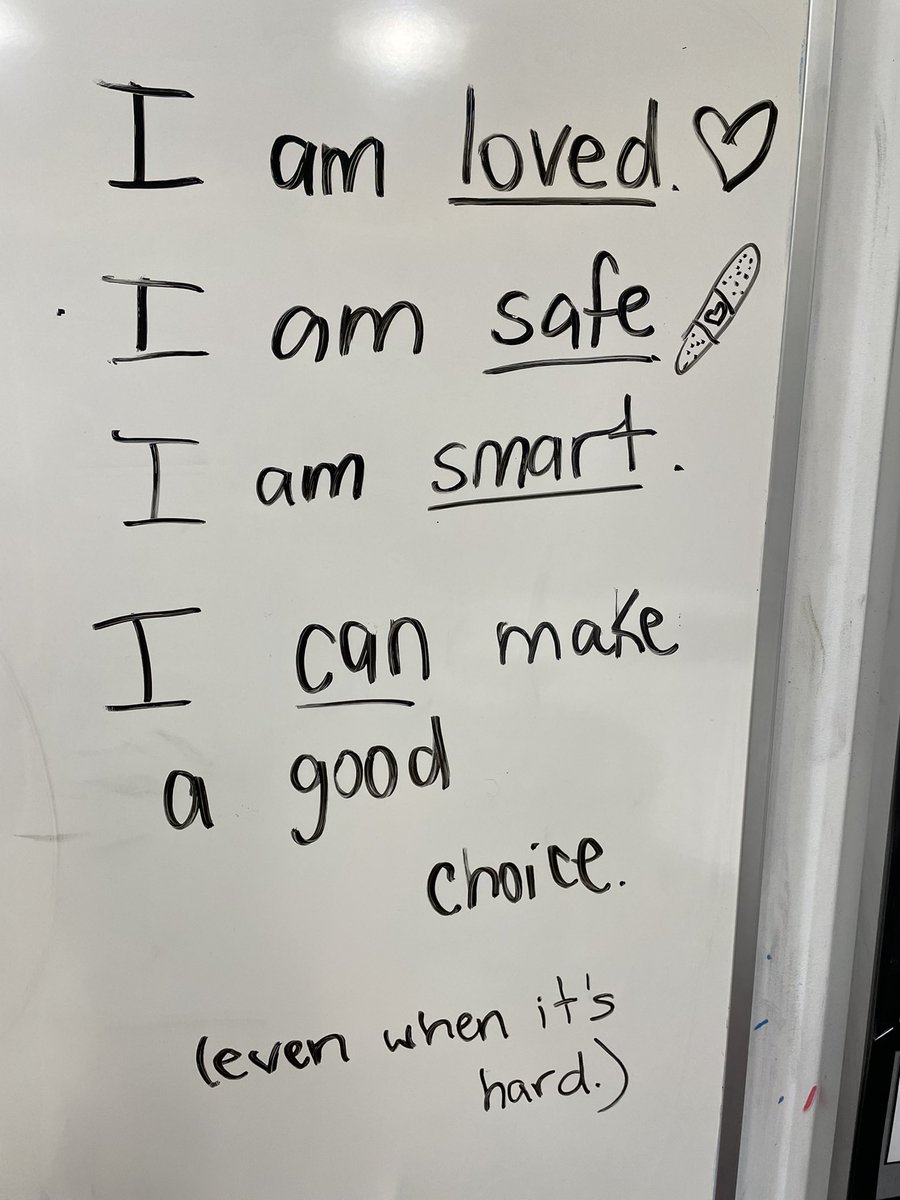 I am loved.
I am safe
I am smart.
I can make
a good
choice.
(even when it's
hard.)